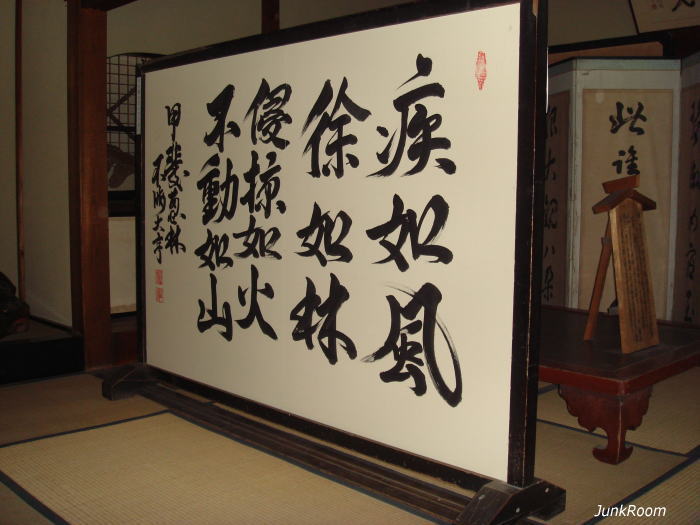 疾如風
徐如林
侵掠如火
不動如山
甲斐恵林
此誰
JunkRoom